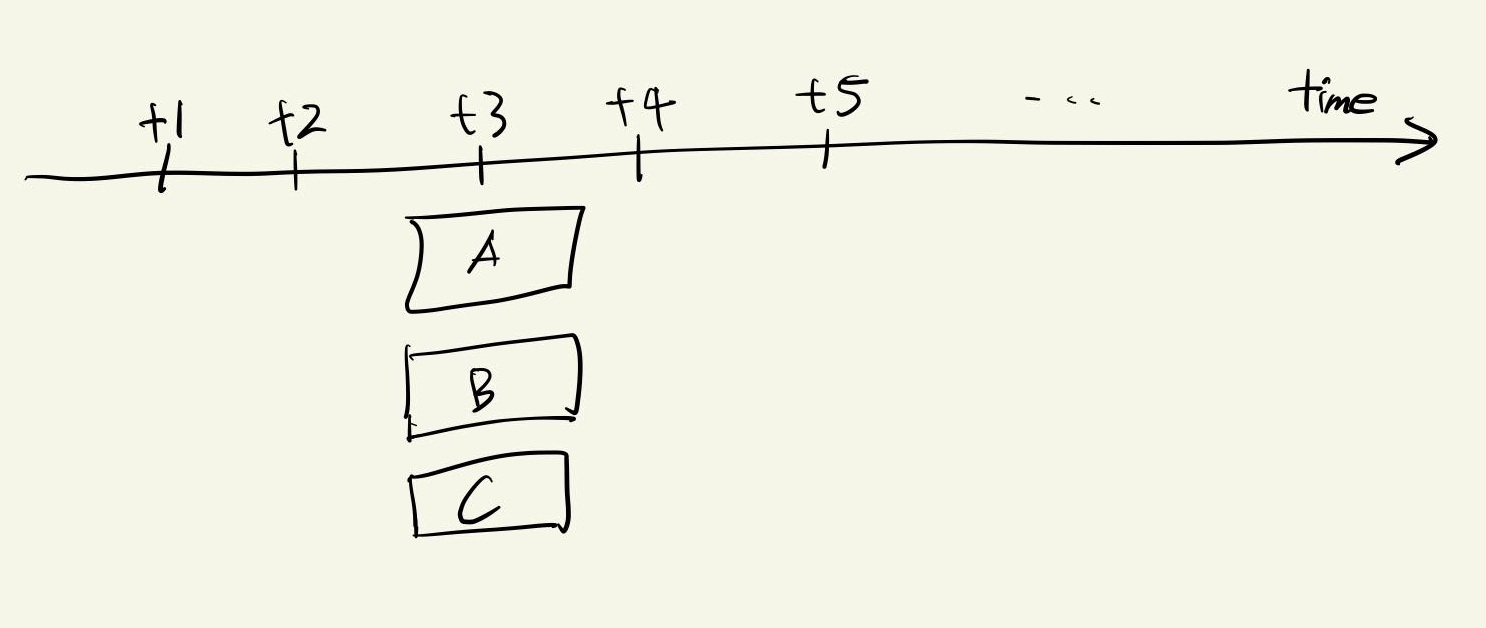 t1 t2 t3 t4 t5 - .. time
A
B
C